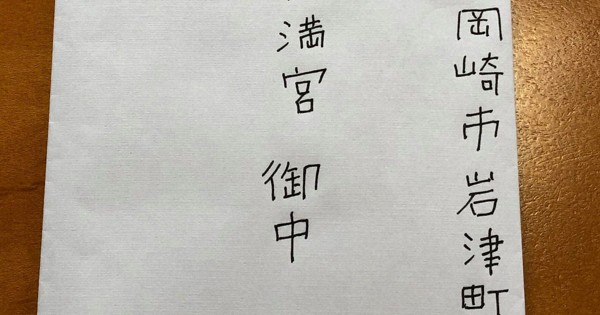 岡崎市岩津町
満宮 御中